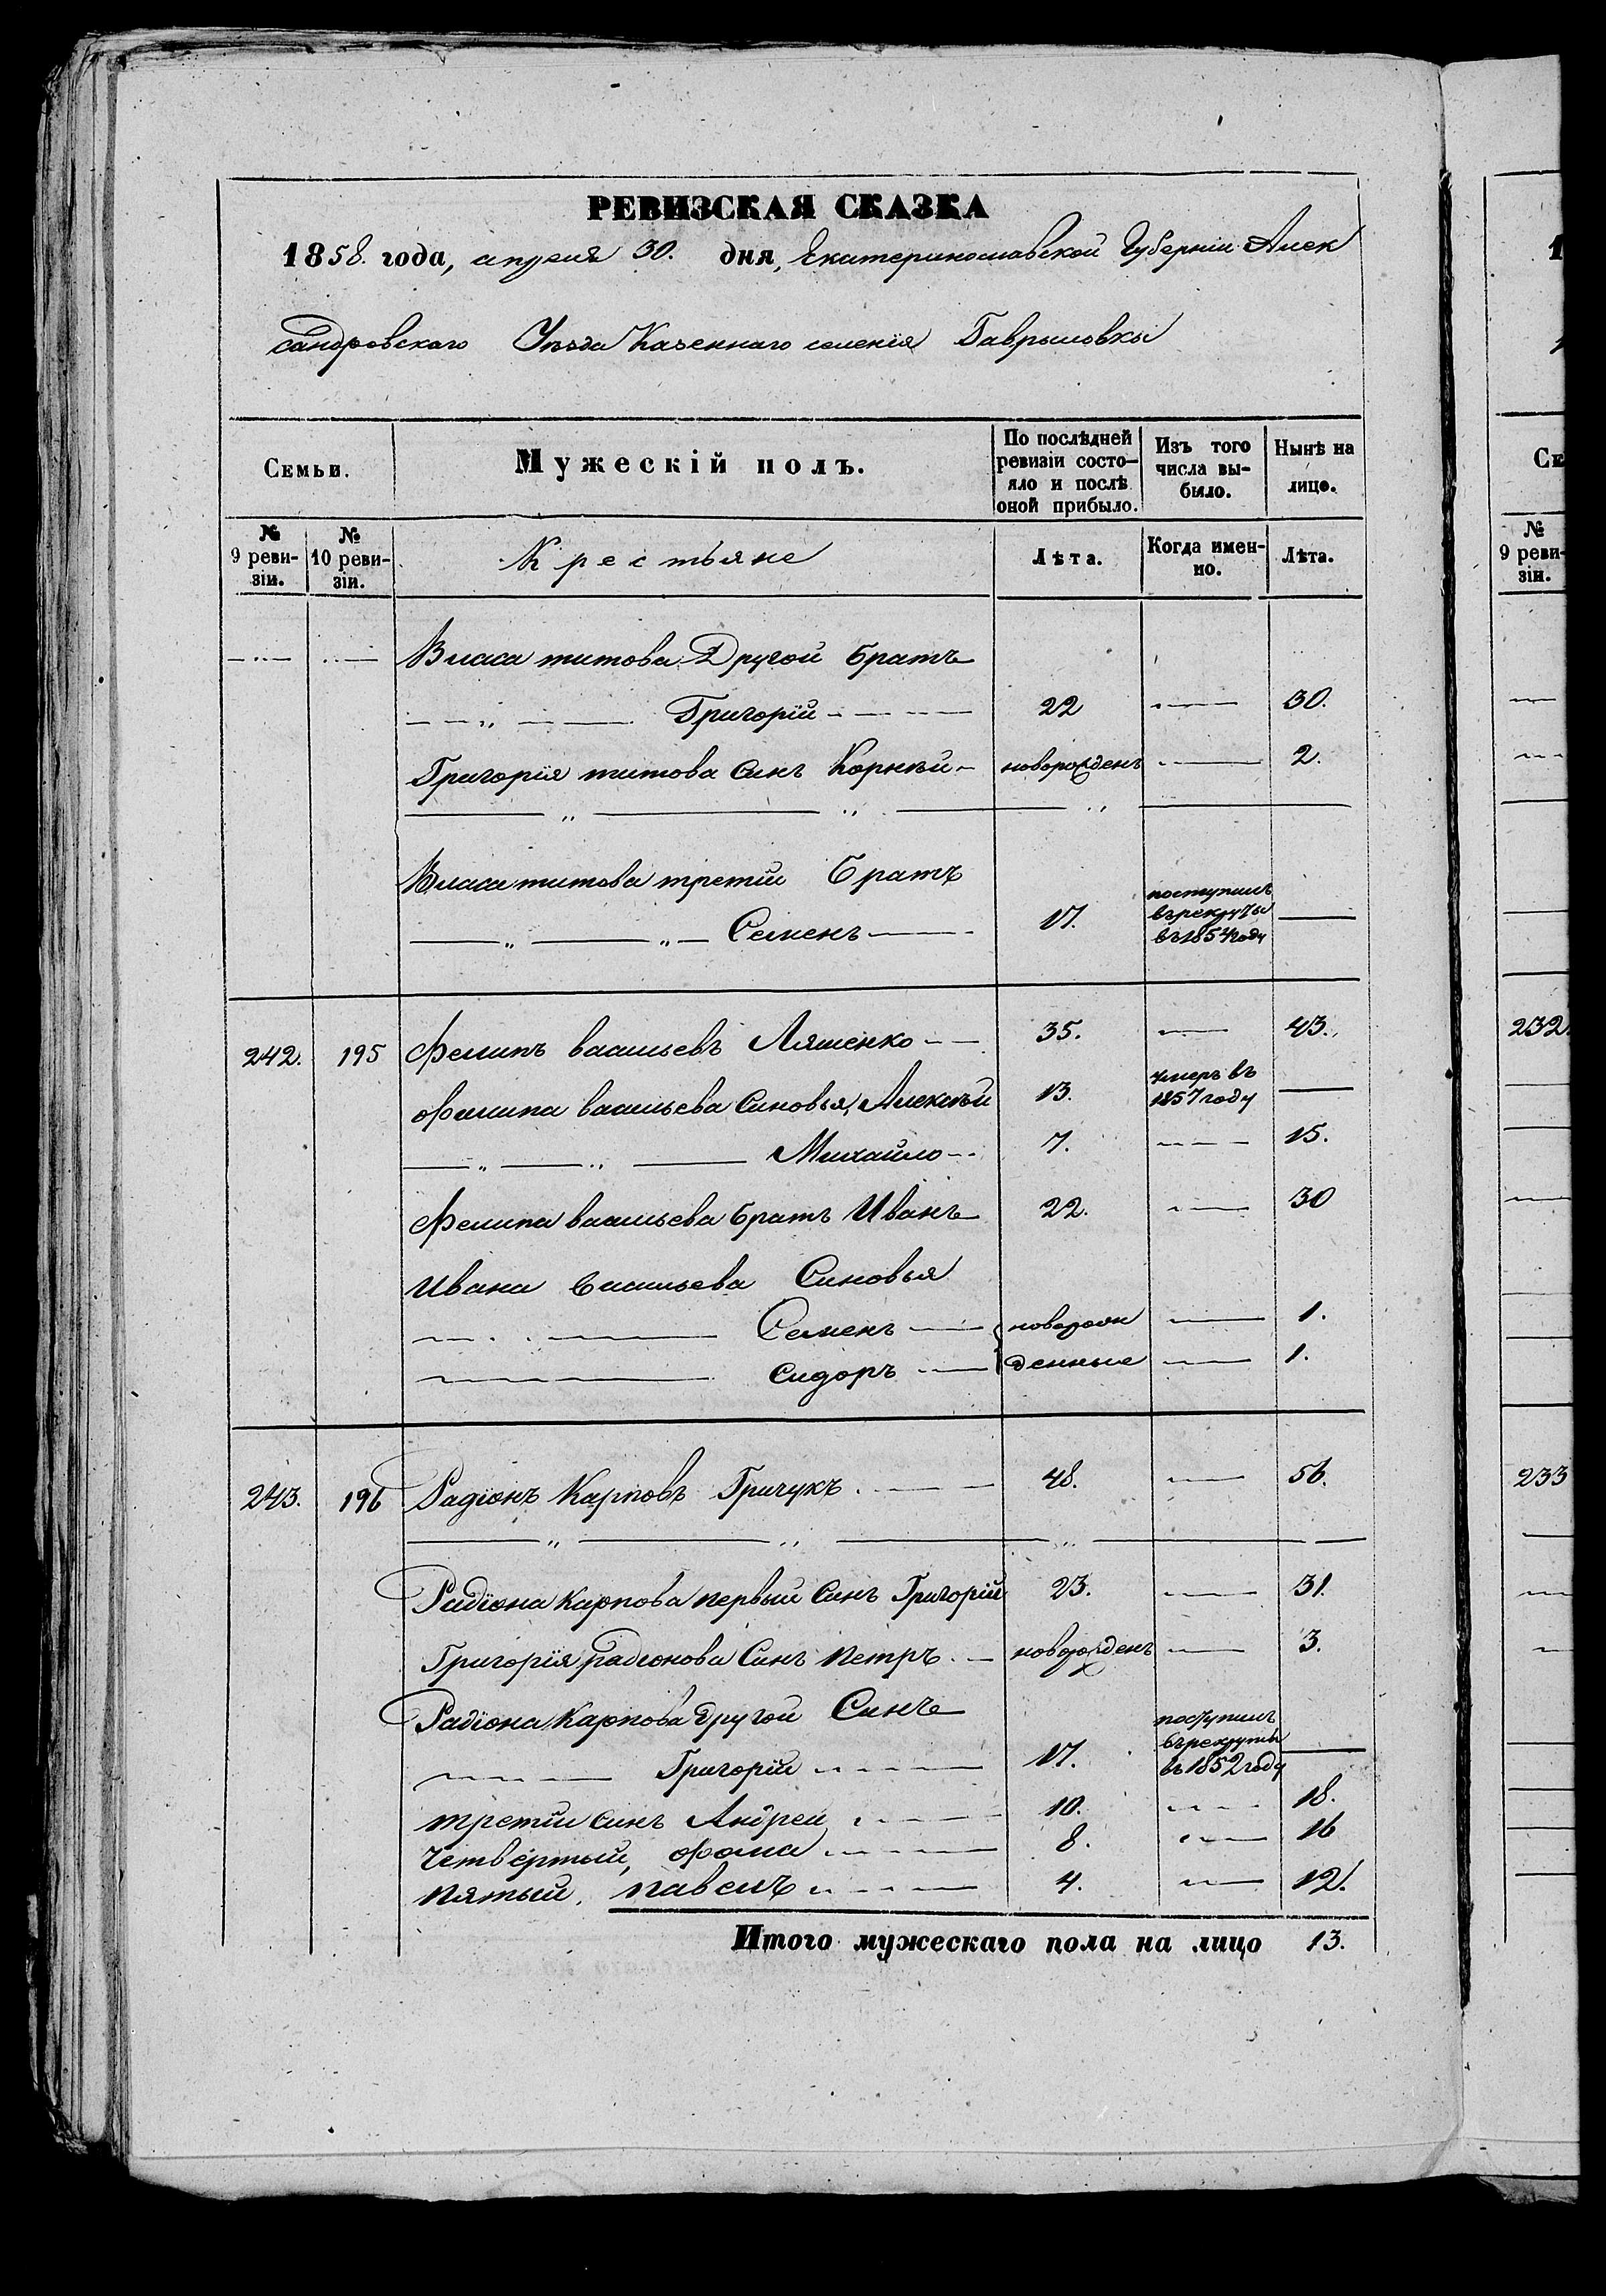 РЕВИЗСКАЯ СКАЗКА
1858. года, апреля 30. дня, Екатеринославской Губерніи Алек
сандровскаго Уѣзда Казеннаго селенія Гаврыловки
Семьи. Мужескій полъ. По послѣдней ревизіи состо- яло и послѣ оной прибыло. Изъ того числа вы- было. Нынѣ на лицо.
№ 9 реви- зіи. № 10 реви- зіи. Крестьяне Лѣта. Когда имен- но. Лѣта.
Власа титова Другой братъ
Григорій 22 30.
Григорія титова Синъ Корнѣй новорожденъ 2.
Власа титова третій Братъ
Семенъ 17. поступилъ въ рекруты въ 1854 году
242. 195 Филипъ васильевъ Ляшенко 35. 43.
Филипа васильева Синовья, Алексѣй 13. умеръ въ 1857 году
Михайло 7. 15.
Филипа васильева братъ Иванъ 22. 30
Ивана васильева Синовья
Семенъ новорож 1.
Сидоръ денные 1.
243. 196 Радіонъ Карповъ Гричукъ 48. 56.
Радіона Карпова первый Синъ Григорій 23. 31.
Григорія радіонова Синъ петръ новорожденъ 3.
Радіона Карпова другой Синъ
Григорій 17. поступилъ въ рекруты въ 1852 году
третій синъ Андрей 10. 18.
Четвертый, Фома 8. 16
Пятый, павелъ 4. 12.
Итого мужескаго пола на лицо 13.
1
Се
№ 9 реви- зіи.
232.
233